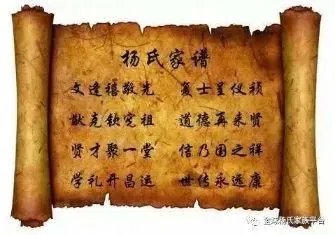 杨氏家谱
文逢禧敬光 美士呈仪祯
猷克钦宪祖 道德再来贤
贤才聚一堂 信乃国之祥
学礼开昌运 世传永远康
全球杨氏家族平台